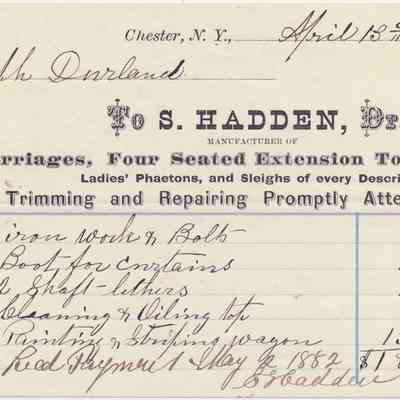 Chester, N. Y., April 13
Durland
To S. HADDEN, Dr
MANUFACTURER OF
rriages, Four Seated Extension To
Ladies' Phaetons, and Sleighs of every Descri
Trimming and Repairing Promptly Atte
iron work & Bolts
Boot for curtains
2 Shaft-lethers
Cleaning & Oiling top
Painting & Striping wagon 1
Recd Payment May 2 1882 $1
S Hadden